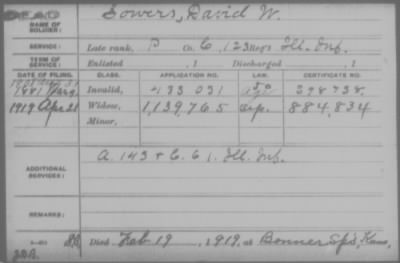 DEAD
NAME OF SOLDIER: Sowers, David W.
SERVICE: Late rank, P Co. C, 123 Reg't Ill. Inf.
TERM OF SERVICE: Enlisted , 1 Discharged , 1
DATE OF FILING. CLASS. APPLICATION NO. LAW. CERTIFICATE NO.
1881 Invalid, 433 031 298 738.
1919 Apr 21 Widow, 1,139,765 884,834
Minor,
ADDITIONAL SERVICES: A. 143 & C. 61. Ill. Inf.
REMARKS:
Died Feb 19, 1919, at Bonner Sp's, Kans,